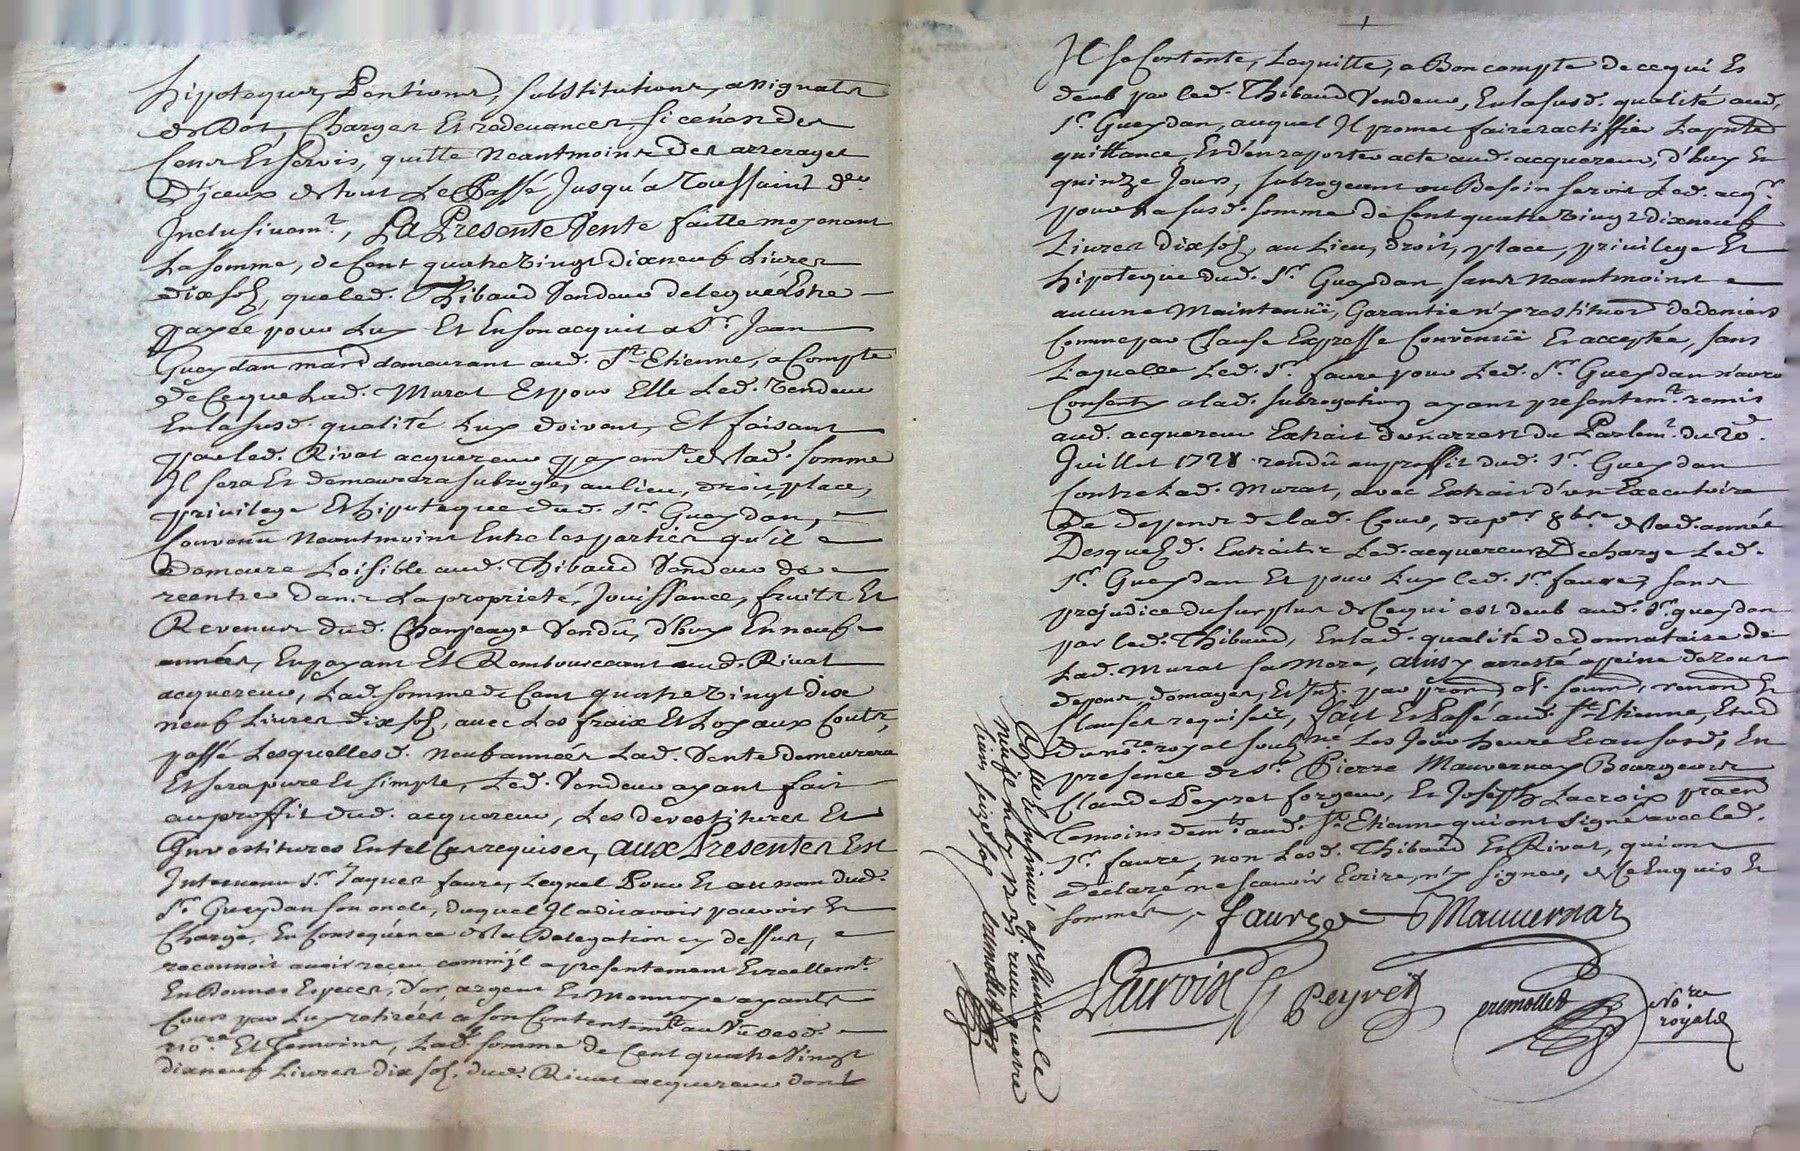 hipoteques, Pentions, substitutions, assignats
de Dot, Charges Et redevances, si ce n'es des
Cens Et servis, quitte Neantmoins Des arrerages
D'jceux de tout Le Passé Jusqu'a Toussaint der.
Inclusivemt., La Presente Vente faitte moyenant
La somme, de Cent quatre vingt dixneuf Livres
dix sols, que led. Thibaud Vendeur delegué Estre
payée pour Luy Et En son acquit a Sr. Jean
Gueydan mard demeurant aud. St. Etienne, a Compte
de Ceque Lad. Murat Et pour Elle Led. Vendeur
En la susd. qualité Luy doivent, Et faisant
par led. Rivat acquereur payemt. de lad. somme
Il sera Et demeurera subrogé, au lieu, droit, place,
privilege Et hipoteque dud. Sr. Gueydan,
Convenu Neantmoins Entre les parties qu'il
Demeure Loisible aud. Thibaud Vendeur de
reentrer dans La proprieté, Jouissance, fruits Et
Revenus dud. Vendu, d'huy En neuf
années, En payant Et Rembourceant aud. Rivat
acquereur, Lad. somme de Cent quatre vingt dix
neuf Livres dix sols, avec Les fraix Et Loyaux Couts,
passé Lesquelles d. neuf années Lad. Vente demeurera
Et sera pure Et simple, Led. Vendeur ayant fait
au proffit dud. acquereur, Les devestitures Et
Investitures En tel Cas requises, aux Presentes Est
Intervenu Sr. Jaques faure, Lequel Pour Et au nom dud.
Sr. Gueydan son oncle, duquel Il a dit avoir pouvoir Et
Charge, En Consequence de la Delegation cy dessus,
reconnoit avoir receu comm'jl a presentement Et reellemt.
En Bonnes Especes, d'or, argent Et Monnoye ayants
Cours par Luy retirées a son Contentemt. au Vu desd.
nore. Et Temoins, Lad. somme de Cent quatre vingt
dixneuf Livres dix sols. dud. Rivat acquereur dont
Il se Contente, Le quitte, a Bon compte de ce qui Es
deub par led. Thibaud Vendeur, En la susd. qualité aud.
Sr. Gueydan, auquel Il promet faire ractiffier La pnte
quittance, Et d'en raporter acte aud. acquereur, d'huy En
quinze Jours, subrogeant au Besoin seroit Led. acqr.
pour La susd. somme de Cent quatre vingt dixneuf
Livres dix sols, au Lieu, droit, place, privilege Et
hipoteque dud. Sr. Gueydan sans Neantmoins
aucune Maintenüe, Garantie n'y restitution de deniers
Comme par Clause Expresse Convenüe Et acceptée, sans
Laquelle Led. Sr. faure pour Led. Sr. Gueydan n'auroit
Consenty a lad. subrogation ayant presentemt. remis
aud. acquereur Extrait d'un arrest du Parlemt. du 20d.
Juillet 1728 rendû au proffit dud. Sr. Gueydan
Contre Lad. Murat, avec Extrait d'un Executoire
De depens de lad. Cour, du per. 8bre de lad. année
Desquels d. Extraits Led. acquereur Decharge Led.
Sr. Gueydan Et pour Luy led. Sr. faure, sans
prejudice du surplus de Ce qui est deub aud. Sr. gueydan
par led. Thibaud, En lad. qualité de donnataire de
Lad. Murat sa Mere, ainsy arresté a peine de tous
depens domages, Et Int. par prom. ob. soum. renon. Et
Clauses requises, fait Et Passé aud. St. Etienne, Etude
du nore. royal sousné. Les Jour heure Et an susd., En
presence de Sr. Pierre Mauvernay Bourgeois
Claude Peyret forgeur, Et Joseph Lacroix pracn
temoins demts. aud. St. Etienne qui ont signé avec led.
Sr. faure, non Lesd. Thibaud Et Rivat, qui ont
declaré ne scavoir Ecrire, n'y signer, de Ce Enquis Et
sommés,
faure Mauvernay
Lacroix Peyret
nore
royal